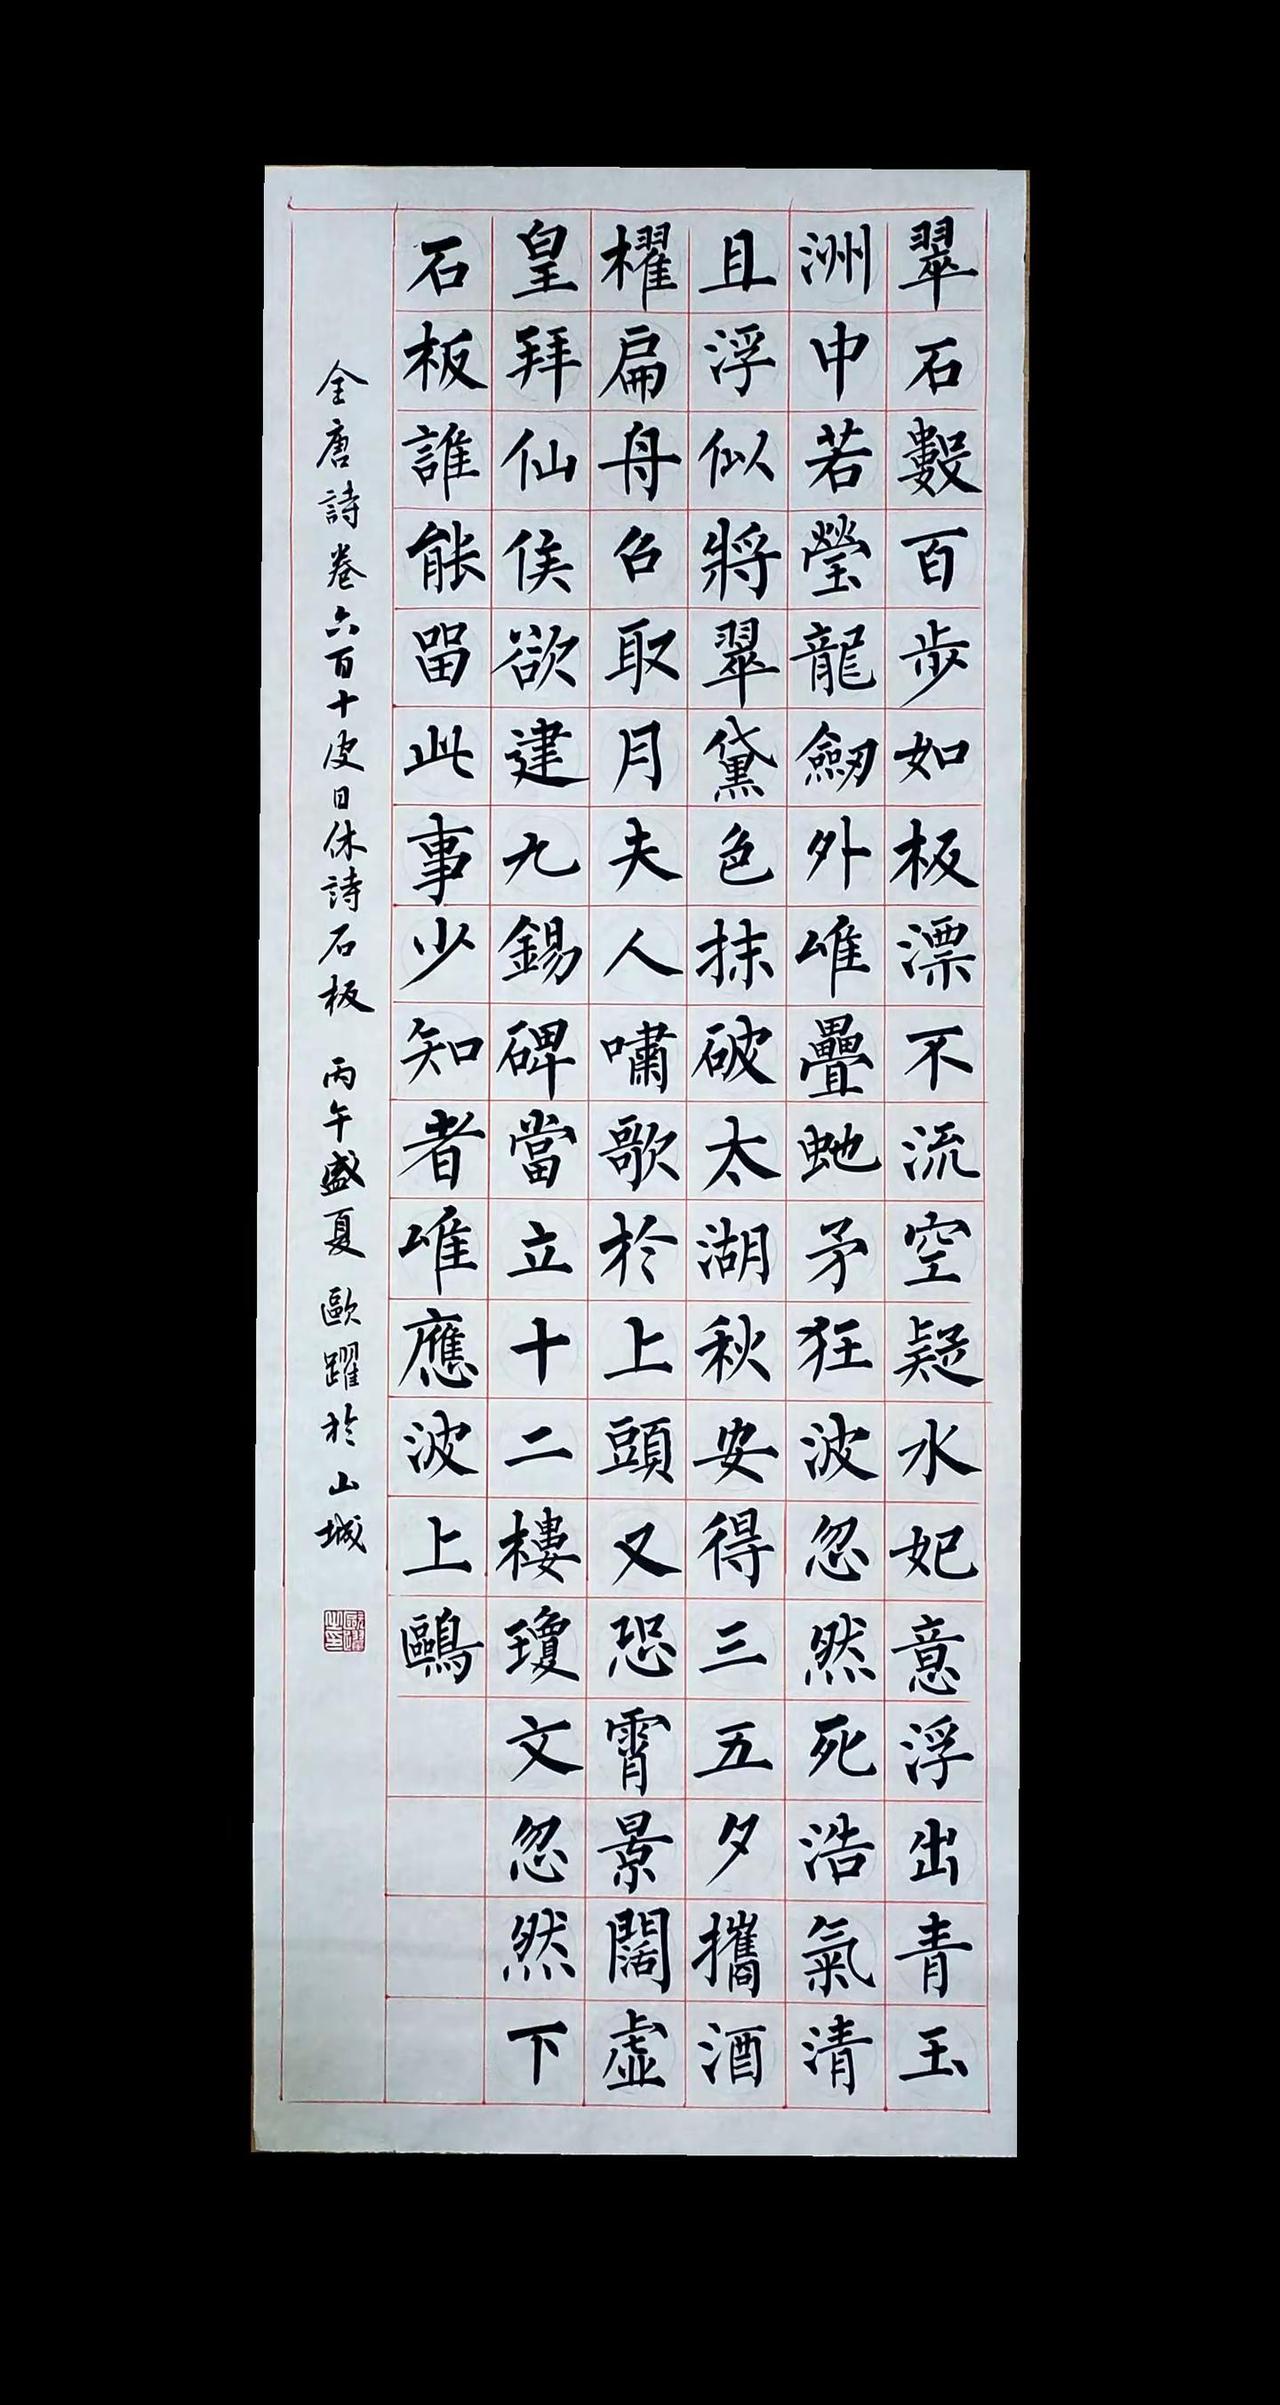 翠石數百步如板漂不流空疑水妃意浮出青玉
洲中若瑩龍劒外唯疊虵矛狂波忽然死浩氣清
且浮似將翠黛色抹破太湖秋安得三五夕攜酒
櫂扁舟召取月夫人嘯歌於上頭又恐霄景闊虛
皇拜仙侯欲建九錫碑當立十二樓瓊文忽然下
石板誰能留此事少知者唯應波上鷗
全唐詩卷六百十皮日休詩石板 丙午盛夏 歐躍於山城
歐躍之印